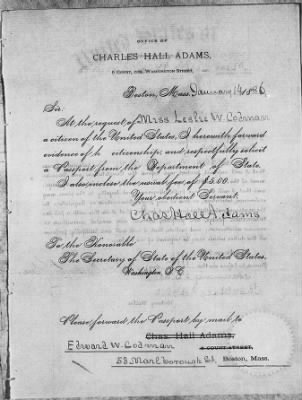 OFFICE OF
CHARLES HALL ADAMS,
5 COURT, COR. WASHINGTON STREET,
Boston, Mass. January 14 1886
Sir.
At the request of Miss Leslie W. Codman
a citizen of the United States, I herewith forward
evidence of h citizenship and respectfully solicit
a Passport from the Department of State.
I also inclose the usual fee of $5.00
Your obedient Servant.
Chas Hall Adams
To the Honorable
The Secretary of State of the United States,
Washington, D.C.
Please forward the Passport by mail to
Chas. Hall Adams,
Edward W. Codman
5 COURT STREET,
53 Marlborough St, Boston, Mass.